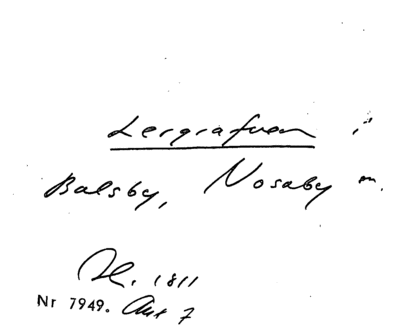 Lergrafven i
Balsby, Nosaby m.
Nr 7949. Aut 7